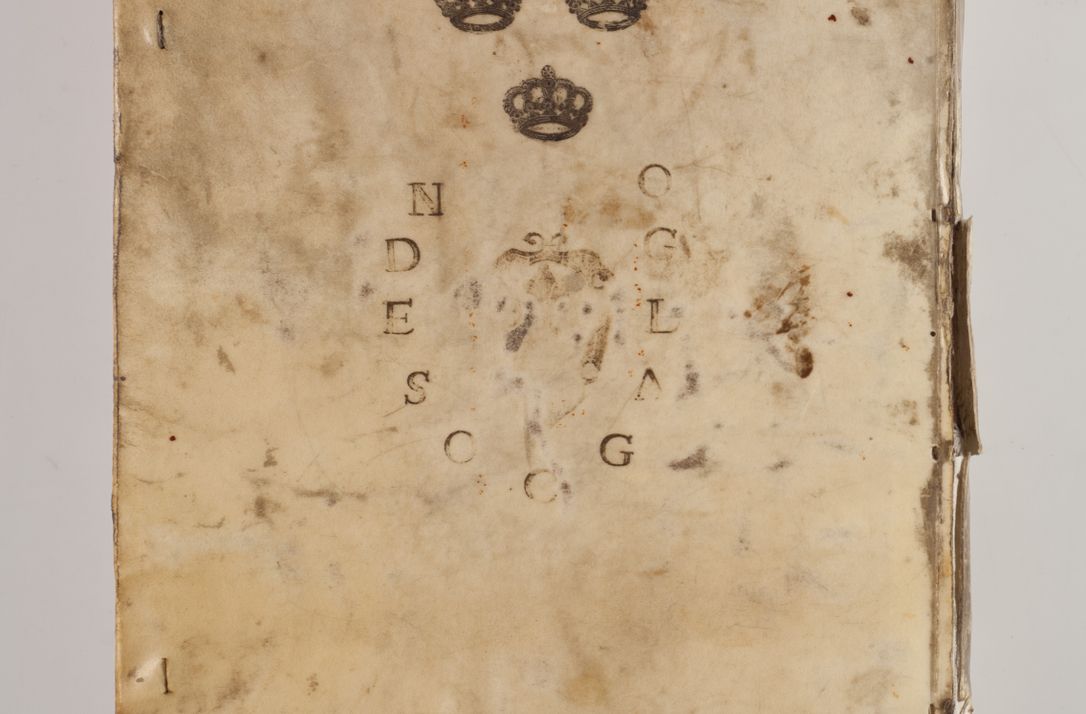 N O
D G
E L
S A
C G
C